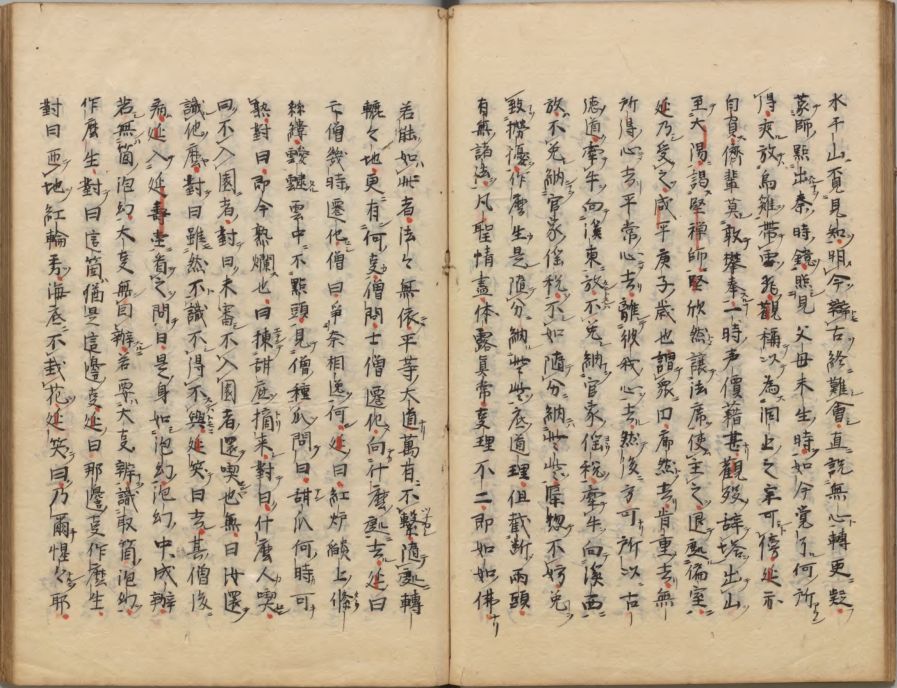 水千山覓見知明今辨古終難會直說無心轉更疑
蒙師點出秦時鏡照見父母未生時如今覺了何所
得夾放烏雞帶雪飛觀稱以為洞上之宗可倚延亦
自負儕輩莫敢攀奉一時声價藉甚觀歿辭塔出山
至大陽謁堅禪師堅欣然讓法席使主之退處偏室
延乃受之咸平庚子歲也謂衆曰廓然去肯重去無
所得心去平常心去離彼我心去然後方可所以古
德道牽牛向溪東放不免納官家徭稅牽牛向溪西
放不免納官家徭稅不如隨分納些些渠總不妨免
致撈擾作麼生是隨分納些些底道理但截斷兩頭
有無諸法凡聖情盡体露真常事理不二即如如佛
若能如此者法々無依平等大道萬有不繫隨處轉
轆々地更有何事僧問士僧遷化向什麼處去延曰
亡僧幾時遷化僧曰爭奈相送何延曰紅炉𦦨上條
絲縷靉靆雲中不點頭見僧種瓜問曰甜瓜何時可
熟對曰即今熟爛也曰揀甜底摘来對曰什麼人喫
曰不入園者對曰未審不入園者還喫也無曰汝還
識他麼對曰雖然不識不得不與延笑曰去其僧後
病延入延壽堂省之問曰是身如泡幻泡幻中成辦
若無箇泡幻大事無由辦若要大事辦識取箇泡幻
作麼生對曰這箇猶是這邊事延曰那邊事作麼生
對曰匝地紅輪秀海底不栽花延笑曰乃爾惺々耶